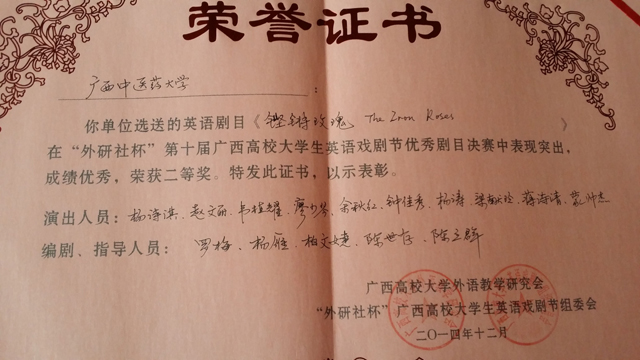 荣誉证书
广西中医药大学:
你单位选送的英语剧目《铿锵玫瑰 The Iron Roses》
在“外研社杯”第十届广西高校大学生英语戏剧节优秀剧目决赛中表现突出,
成绩优秀,荣获二等奖。特发此证书,以示表彰。
演出人员:杨诗淇、赵文丽、韦植耀、余秋仁、钟佳秀、杨涛、蒋海清、
编剧、指导人员:罗梅、杨雁、柏文婕、陈世存、陈立辉
广西高校大学外语教学研究会
“外研社杯”广西高校大学生英语戏剧节组委会
二〇一四年十二月